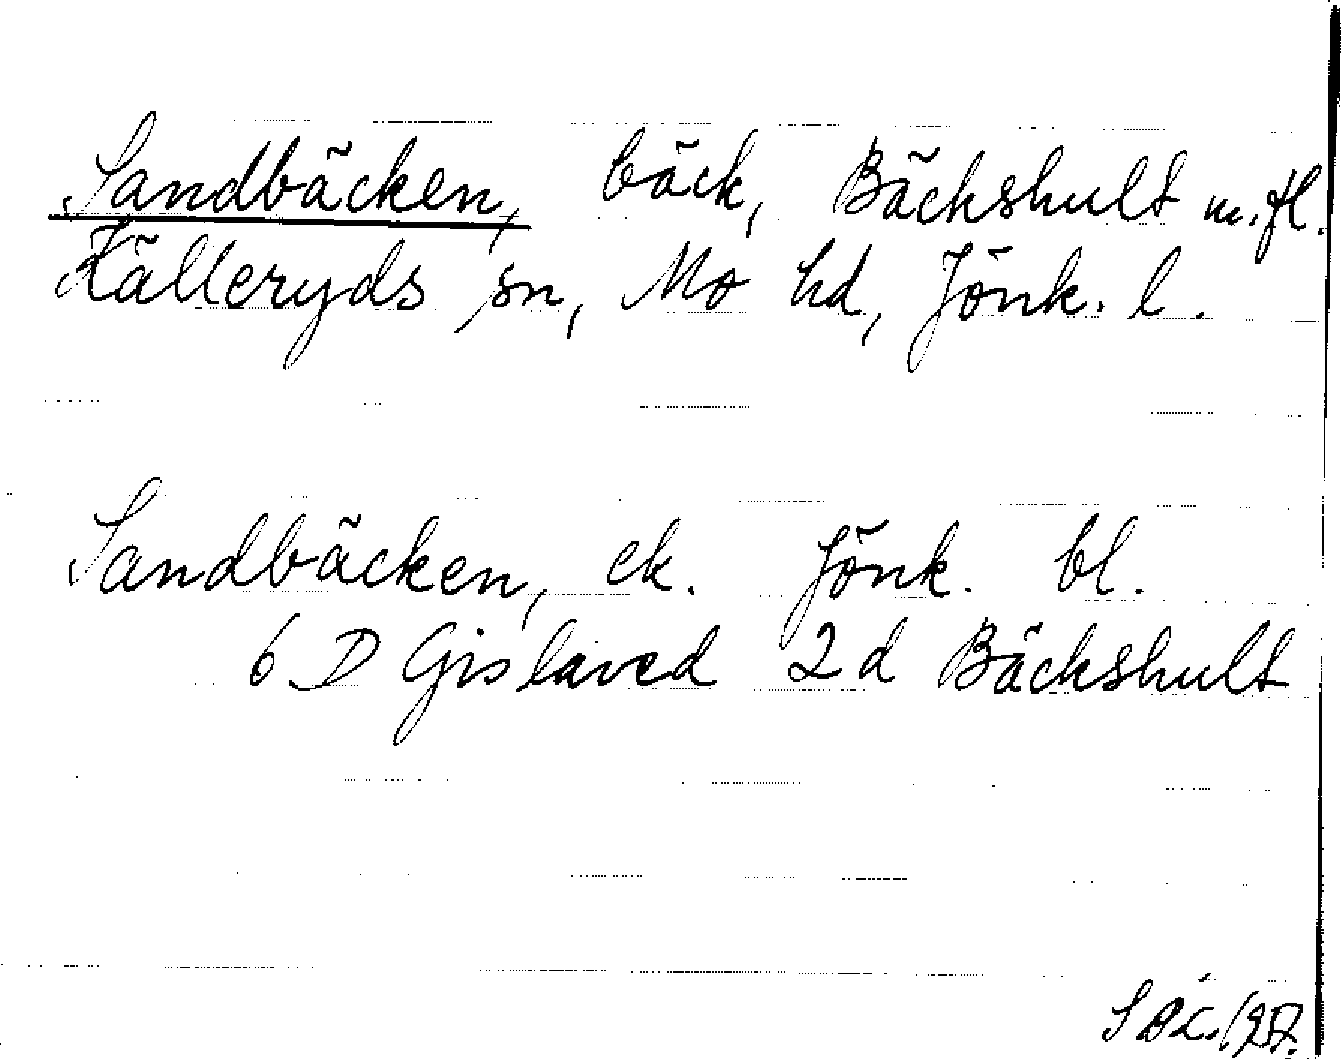 Sandbäcken, bäck, Bäckshult m. fl.
Källeryds sn, Mo hd, Jönk. l.
Sandbäcken, ek. Jönk. bl.
6 D Gislaved 2 d Bäckshult